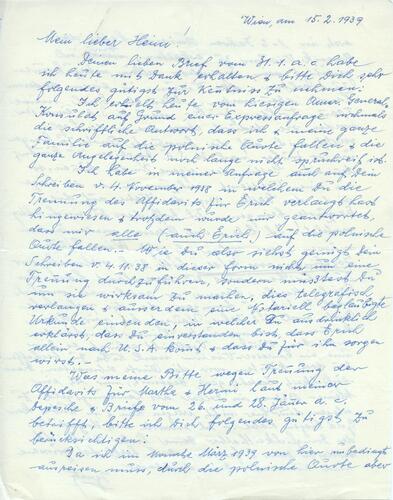 Wien, am 15.2.1939
Mein lieber Heini!
Deinen lieben Brief vom 31.1. a. c. habe
ich heute mit Dank erhalten & bitte Dich sehr
folgendes gütigst zur Kenntniss zu nehmen:
Ich erhielt heute vom hiesigen Amer. General-
Konsulat auf Grund einer Expressanfrage nochmals
die schriftliche Antwort, dass ich & meine ganze
Familie auf die polnische Quote fallen & die
ganze Angelegenheit noch lange nicht spruchreif ist.
Ich habe in meiner Anfrage auch auf Dein
Schreiben v. 4. November 1918 in welchem Du die
Trennung des Affidavits für Erich verlangt hast
hingewiesen & trotzdem wurde mir geantwortet,
dass wir alle (auch Erich) auf die polnische
Quote fallen. Wie Du also siehst genügt Dein
Schreiben v. 4.11.38 in dieser Form nicht um eine
Trennung durchzuführen, sondern müsstest Du
um sie wirksam zu machen, dies telegrafisch
verlangen & ausserdem eine notariell beglaubigte
Urkunde einsenden, in welcher Du ausdrücklich
erklärst, dass Du einverstanden bist dass Erich
allein nach U.S.A. kommt & dass Du für ihn sorgen
wirst.
Was meine Bitte wegen Trennung der
Affidavits für Martha & Hermi laut meiner
Depesche & Briefe vom 26. und 28. Jäner a. c.
betrifft, bitte ich Dich folgendes gütigst zu
berücksichtigen:
Da ich im Monate März 1939 von hier unbedingt
ausreisen muss, durch die polnische Quote aber